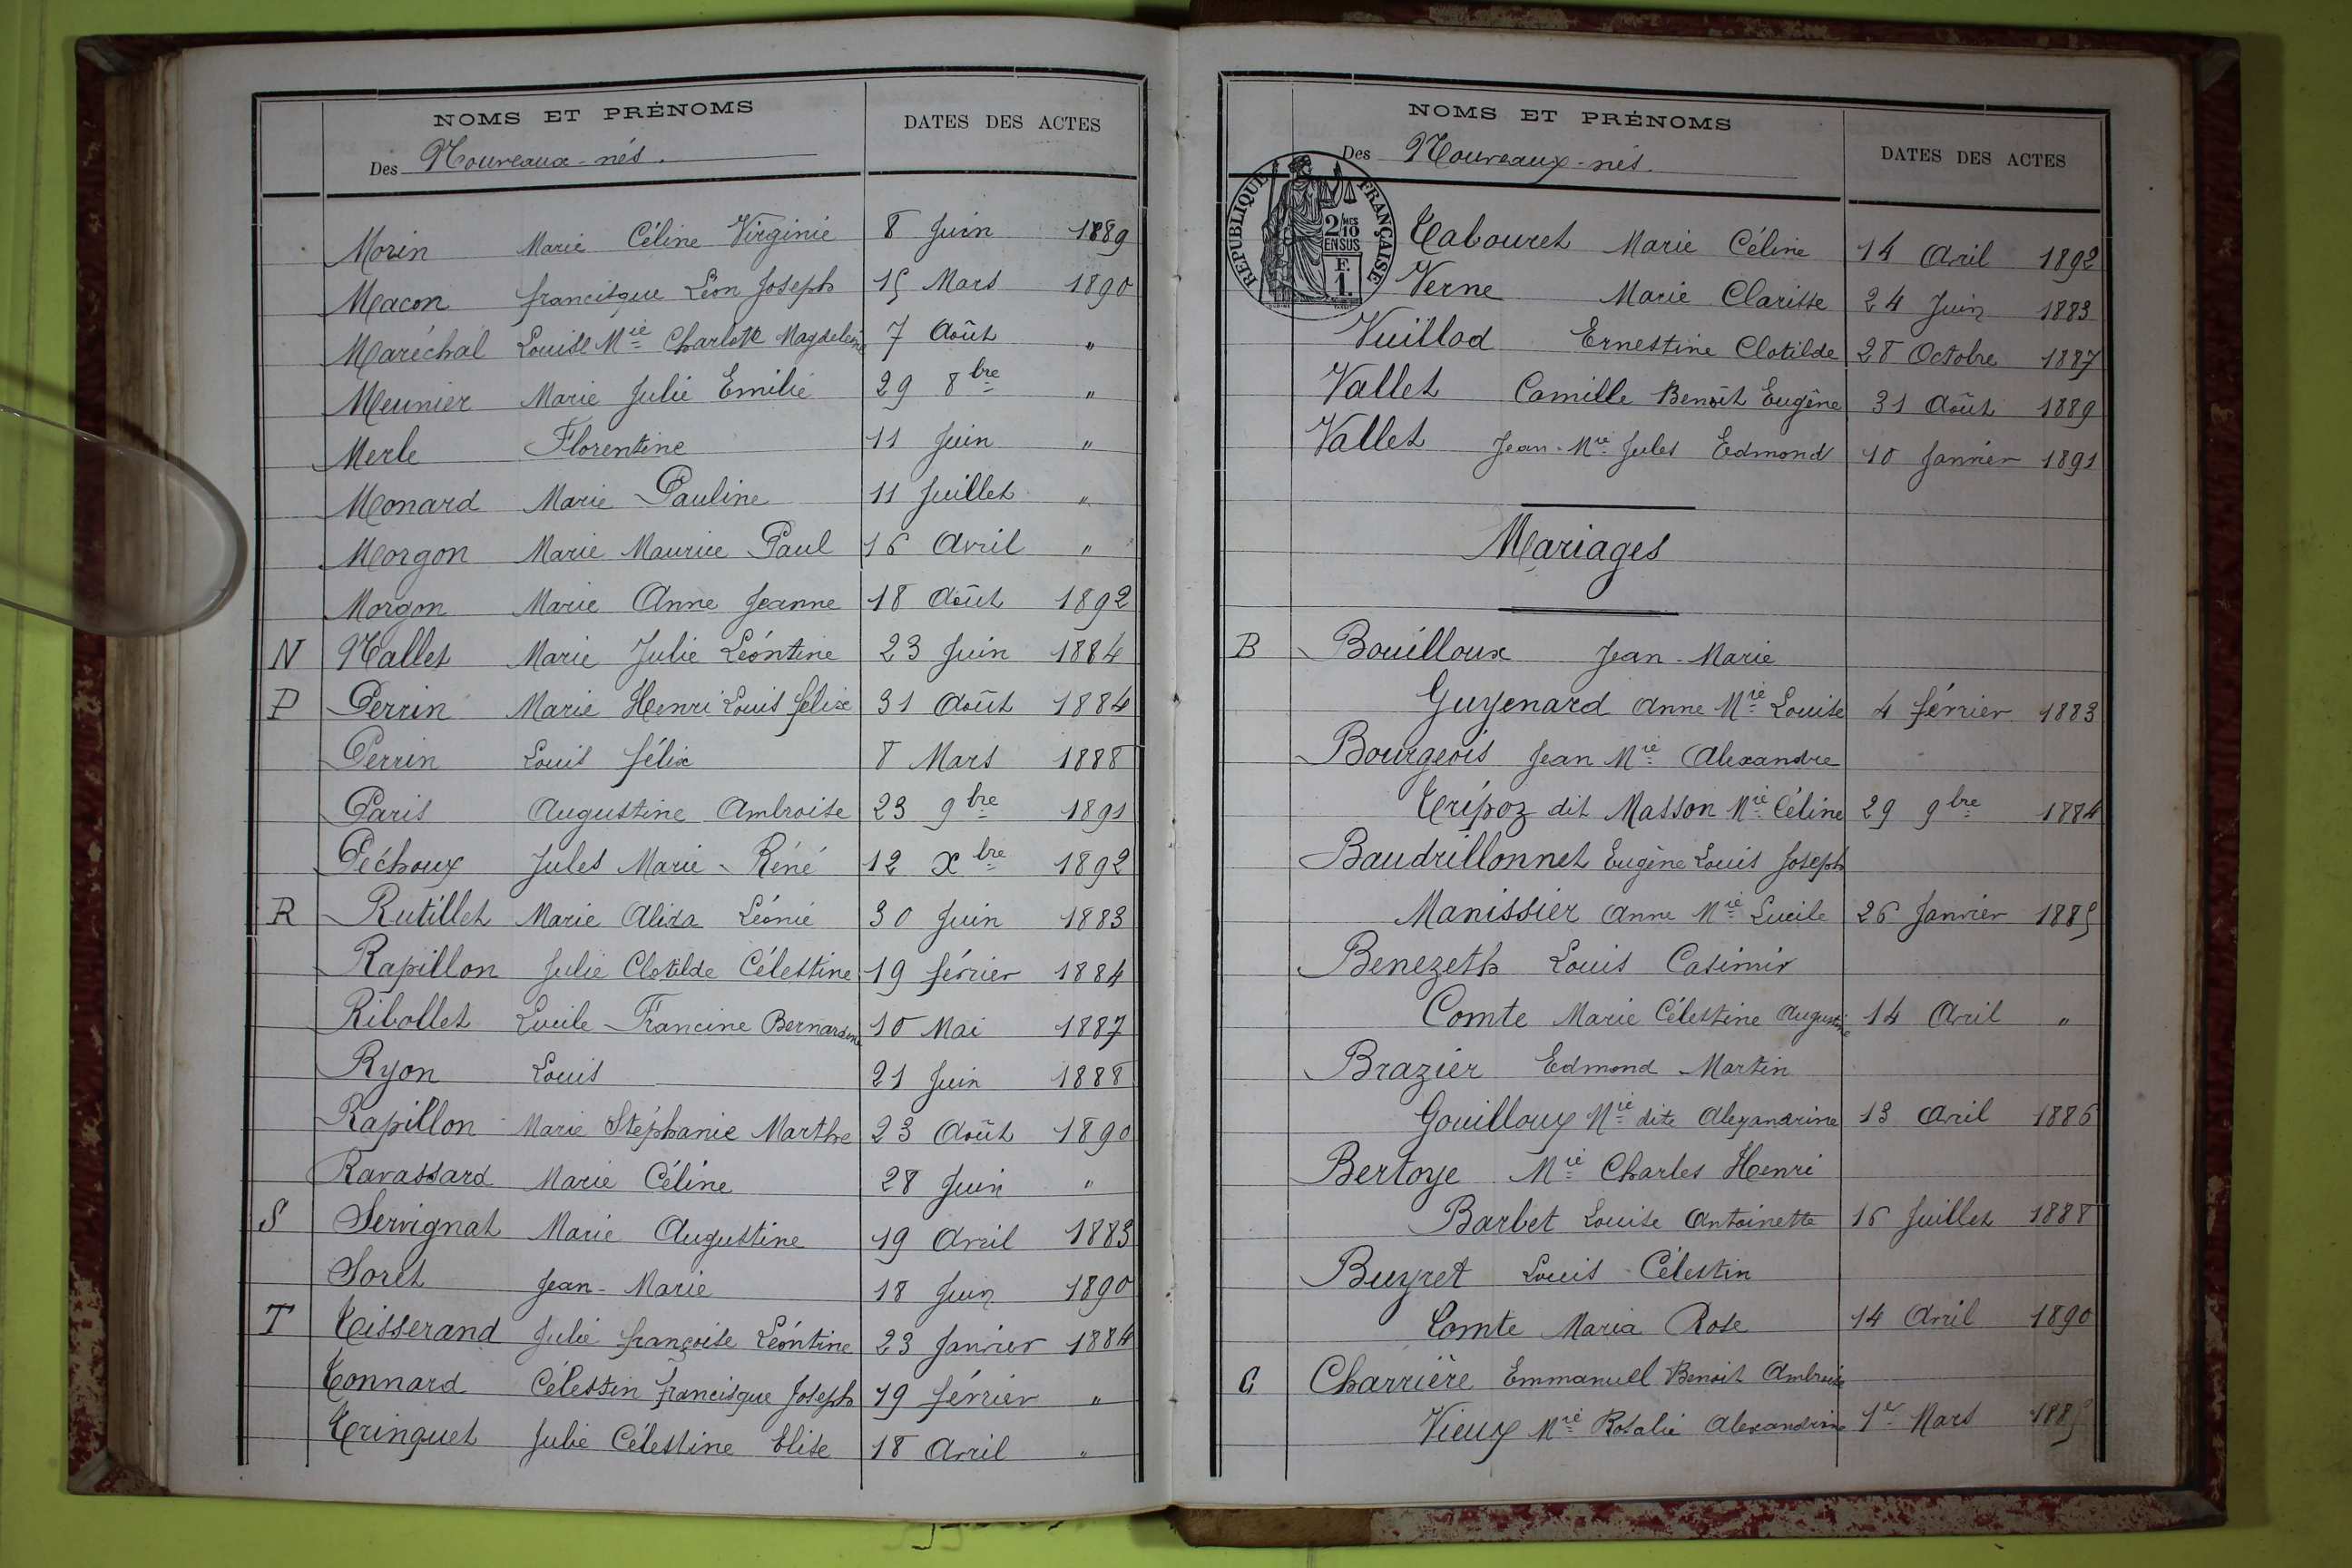 NOMS ET PRÉNOMS
DATES DES ACTES
Des Nouveaux-nés.
Morin Marie Céline Virginie 8 Juin 1889
Macon francisque Léon Joseph 15 Mars 1890
Maréchal Louise Mie Charlotte Magdeleine 7 Août "
Meunier Marie Julie Emilie 29 8bre "
Merle Florentine 11 Juin "
Monard Marie Pauline 11 Juillet "
Morgon Marie Maurice Paul 16 Avril "
Morgon Marie Anne Jeanne 18 Août 1892
N Nallet Marie Julie Léontine 23 Juin 1884
P Perrin Marie Henri Louis félix 31 Août 1884
Perrin Louis félix 8 Mars 1888
Paris Augustine Ambroise 23 9bre 1891
Péchoux Jules Marie - Réné 12 Xbre 1892
R Rutillet Marie Alixa Léonie 30 Juin 1883
Rapillon Julie Clotilde Célestine 19 février 1884
Ribollet Lucile Francine Bernardine 10 Mai 1887
Ryon Louis 21 Juin 1888
Rapillon Marie Stéphanie Marthe 23 Août 1890
Ravassard Marie Céline 28 Juin "
S Servignat Marie Augustine 19 Avril 1883
Soret Jean-Marie 18 Juin 1890
T Tisserand Julie françoise Léontine 23 Janvier 1884
Tonnard Célestin francisque Joseph 19 février "
Tringuet Julie Célestine Elise 18 Avril "
NOMS ET PRÉNOMS
DATES DES ACTES
Des Nouveaux-nés.
RÉPUBLIQUE FRANÇAISE
2/10 MES
EN SUS
F.
1.
Tabouret Marie Céline 14 Avril 1892
Verne Marie Clarisse 24 Juin 1883
Vuillod Ernestine Clotilde 28 Octobre 1887
Vallet Camille Benoît Eugène 31 Août 1889
Vallet Jean-Mie Jules Edmond 10 Janvier 1891
Mariages
B Bouilloux Jean-Marie
Guyenard Anne Mie Louise 4 février 1883
Bourgeois Jean Mie Alexandre
Trípoz dit Masson Mie Céline 29 9bre 1884
Baudrillonnet Eugène Louis Joseph
Manissier Anne Mie Lucile 26 Janvier 1885
Benezeth Louis Casimir
Comte Marie Célestine Augustine 14 Avril "
Brazier Edmond Martin
Gouilloux Mie dite Alexandrine 13 Avril 1886
Bertoye Mie Charles Henri
Barbet Louise Antoinette 16 Juillet 1888
Buyret Louis Célestin
Comte Maria Rose 14 Avril 1890
C Charrière Emmanuel Benoit Ambroise
Vieux Mie Rosalie Alexandrine 1er Mars 1885